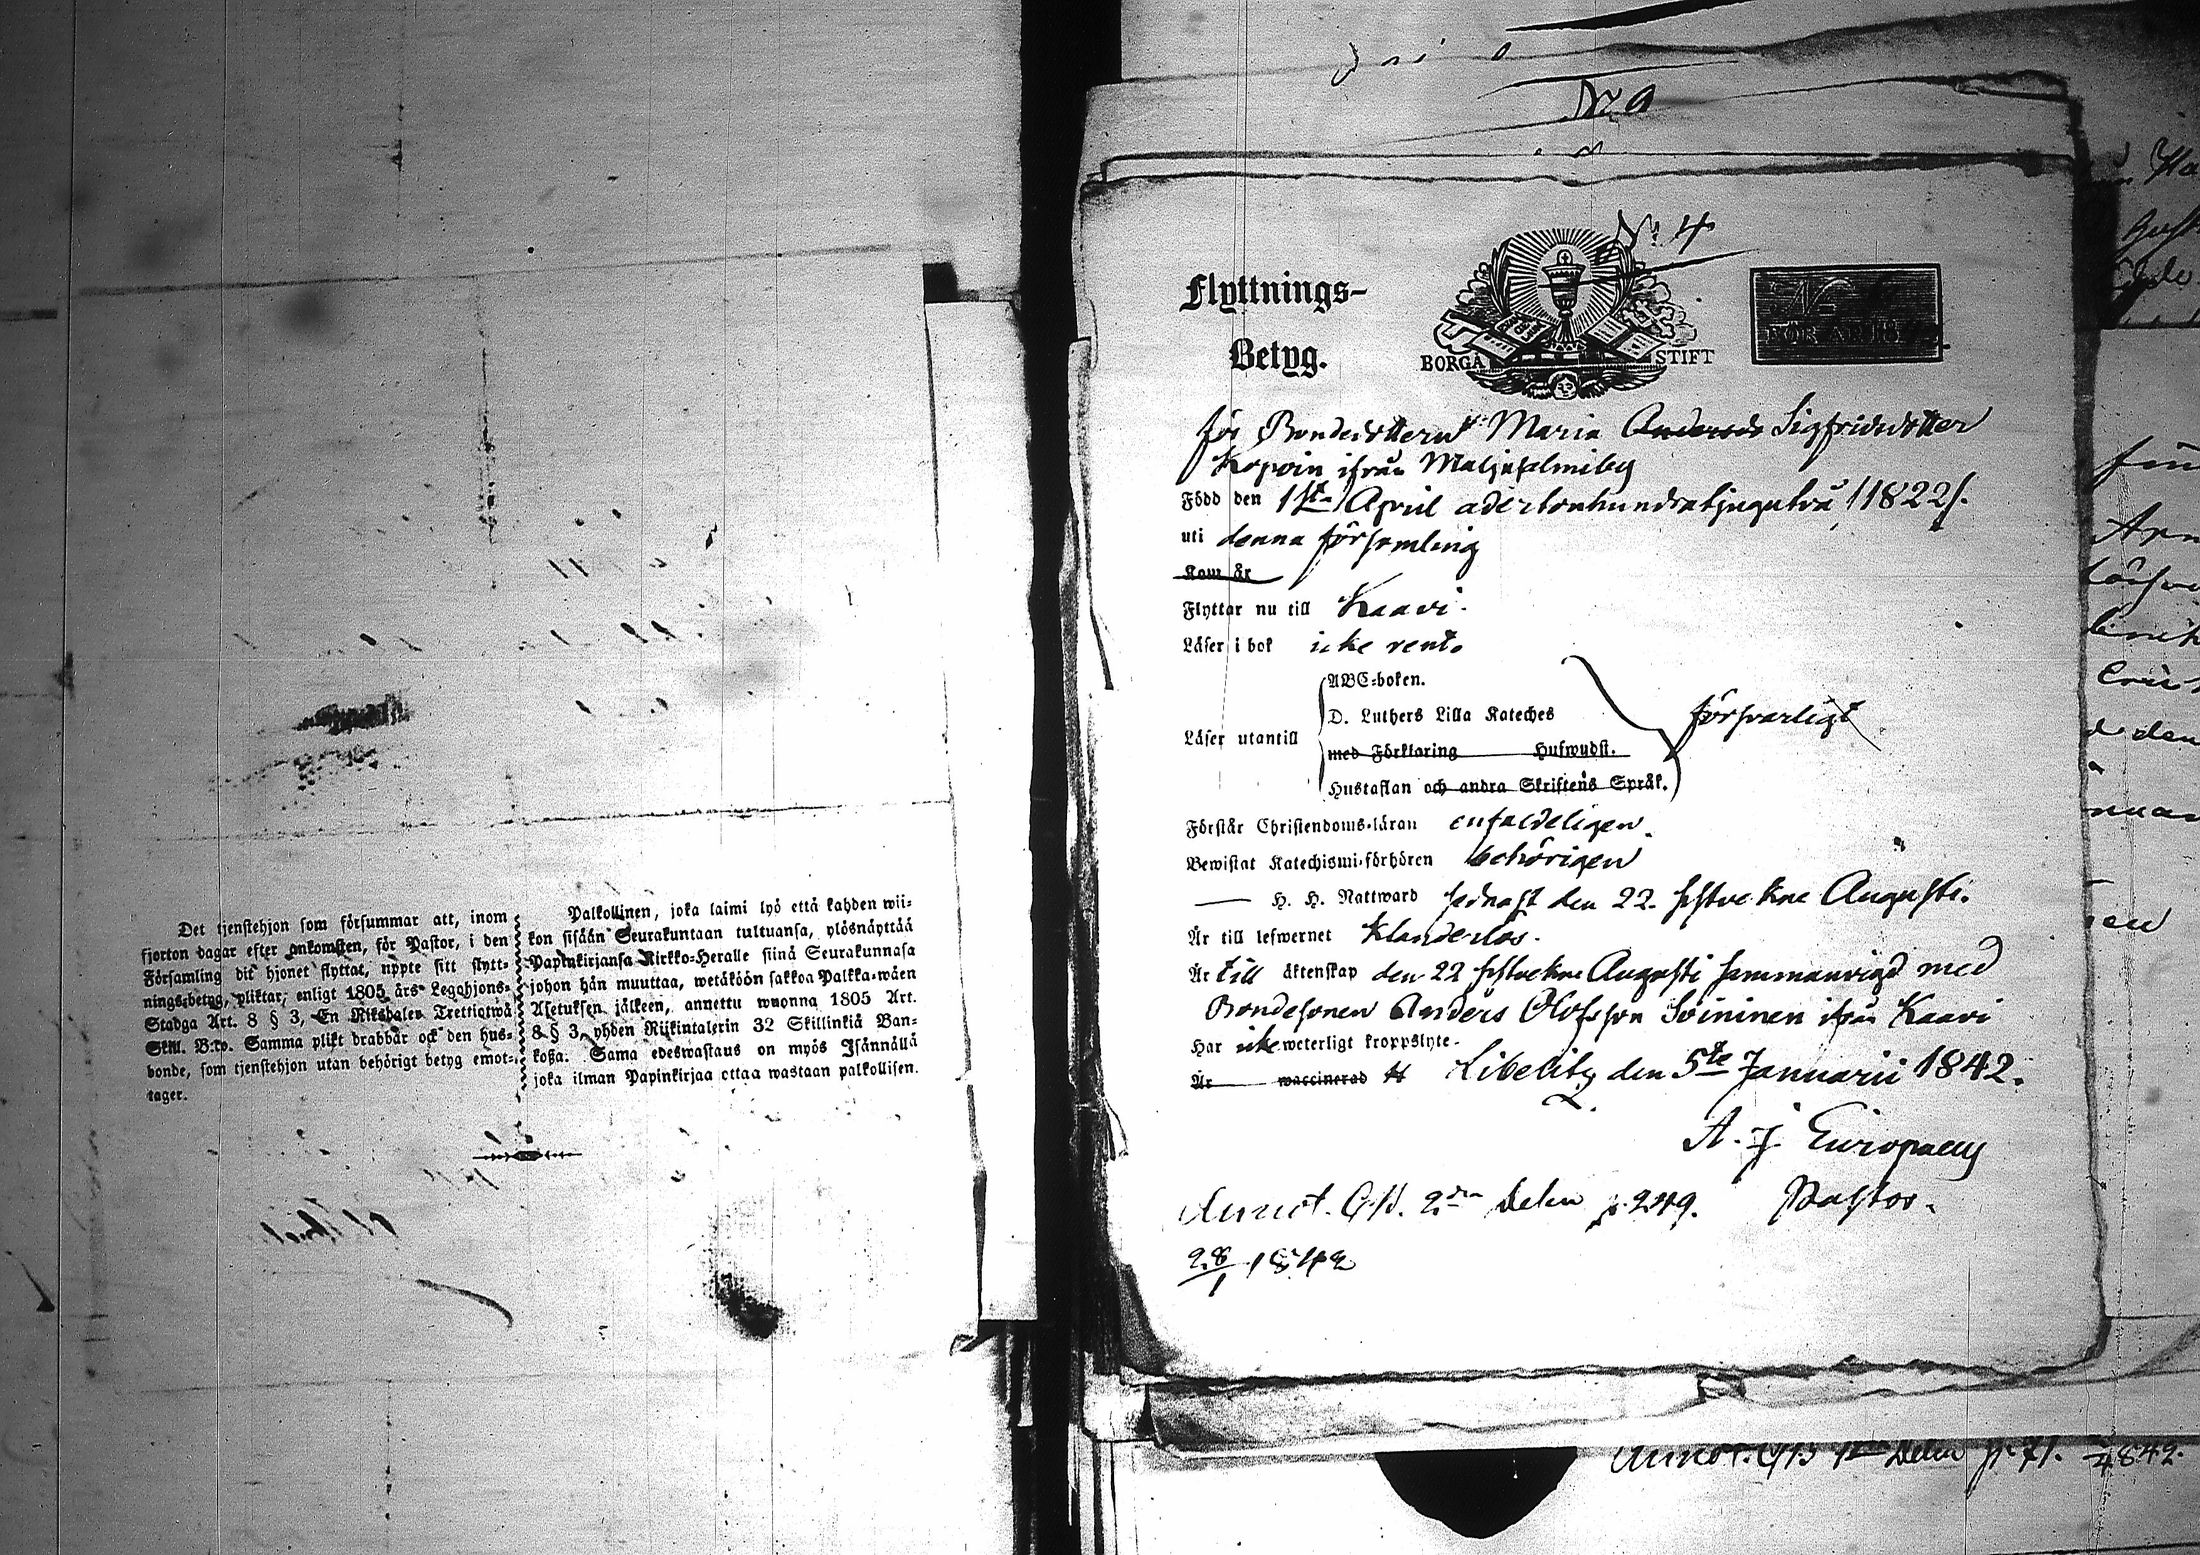 Det tjenstehjon som försummar att, inom
fjorton dagar efter ankomsten, för Pastor, i den
Församling dit hjonet flyttat, uppte sitt flytt-
nings-betyg, pliktar, enligt 1805 års Legohjons-
Stadga Art. 8 § 3, En Riksdaler Trettiotwå
Skill. B:ko. Samma plikt drabbar ock den hus-
bonde, som tjenstehjon utan behörigt betyg emot-
tager.
Palkollinen, joka laimi lyö että kahden wii-
kon sisään Seurakuntaan tultuansa, ylösnäyttää
Papinkirjansa Kirkko-Heralle siinä Seurakunnasa
johon hän muuttaa, wetäköön sakkoa Palkka-wäen
Asetuksen jälkeen, annettu wuonna 1805 Art.
8 § 3, yhden Riikintalerin 32 Skillinkiä Ban-
koßa. Sama edeswastaus on myös Isännällä
joka ilman Papinkirjaa ottaa wastaan palkollisen.
No 9
No 4
Flyttnings-
Betyg.
BORGÅ STIFT
N
FÖR ÅR 18
för Bondedottern Maria Anderscds Sigfridsdotter
Kopoin ifrån Maljasalmiby
Född den 1sta April adertonhundratjugutvå /1822/.
uti denna församling
Kom år
Flyttar nu till Kaavi.
Läser i bok icke rent.
Läser utantill
ABC-boken.
D. Luthers Lilla Kateches
med Förklaring Hufwudst.
Hustaflan och andra Skriftens Språk.
försvarligt
Förstår Christendoms-läran enfaldeligen.
Bewistat Katechismi-förhören behörigen
H. H. Nattward sednast den 22. sistvekne Augusti.
Är till lefwernet klanderlös.
Är till äktenskap den 22 sistvekne Augusti sammanvigd med
Bondesonen Anders Olofsson Soininen ifrån Kaavi
Har icke weterligt kroppslyte.
Är waccinerad
Libelitz den 5te Januarii 1842.
A. J. Europaeus
Pastor.
Annot. C.B. 2dra Delen p. 249.
28/1 1842
Annot. C.B 1sta Delen p. 71. 1842.